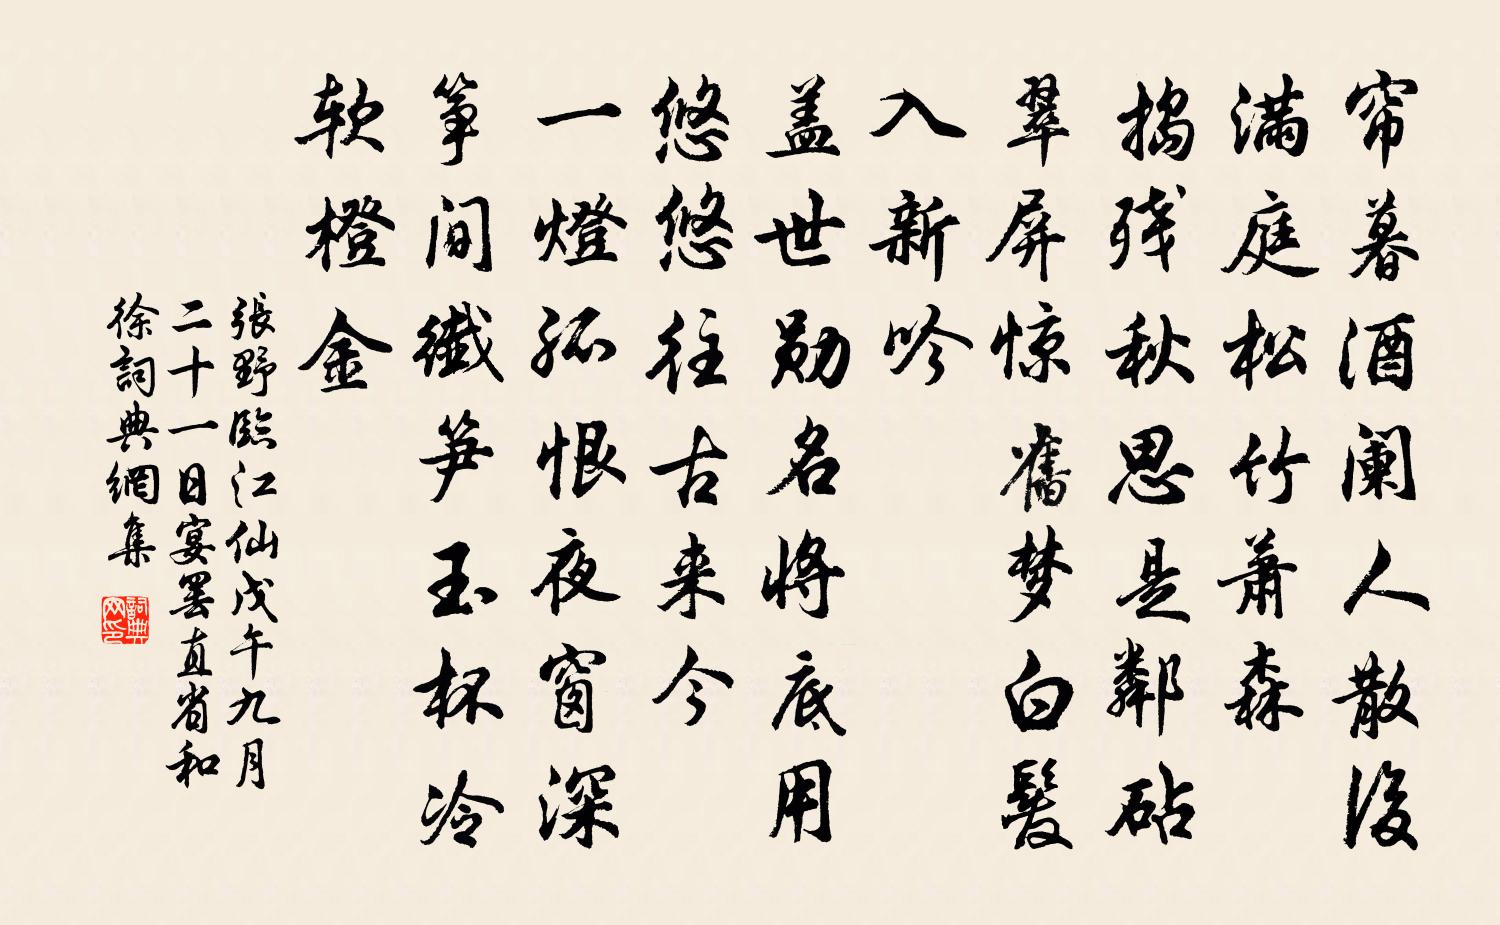 帘暮酒阑人散後
满庭松竹萧森
搗残秋思是鄰砧
翠屏惊舊梦白髮
入新吟
盖世勋名将底用
悠悠往古来今
一燈孤恨夜窗深
筝间纖笋玉杯冷
软橙金
張野臨江仙戊午九月
二十一日宴罢直省和
徐詞典網集
詞典
网印